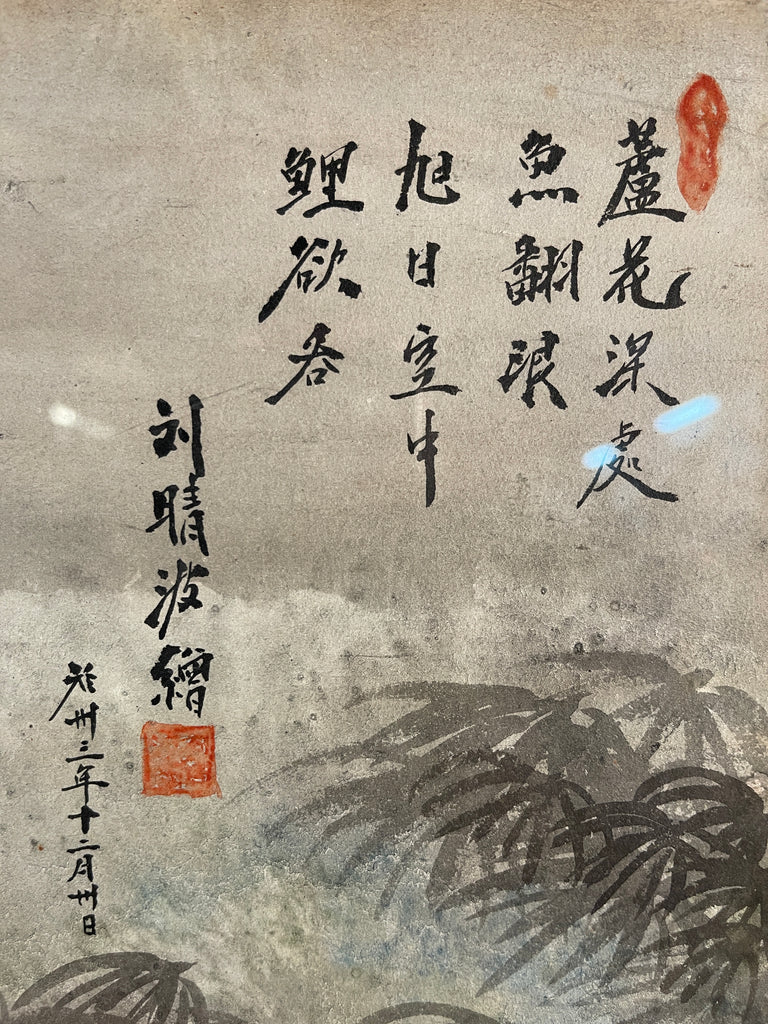 蘆花深處
魚翻浪
旭日空中
鯉欲吞
刘晴波繪
於卅三年十二月卅日